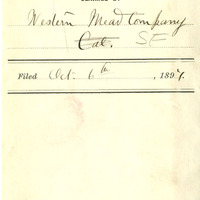 Western Mead Company
Cal. SF
Filed Oct. 6th, 1897.